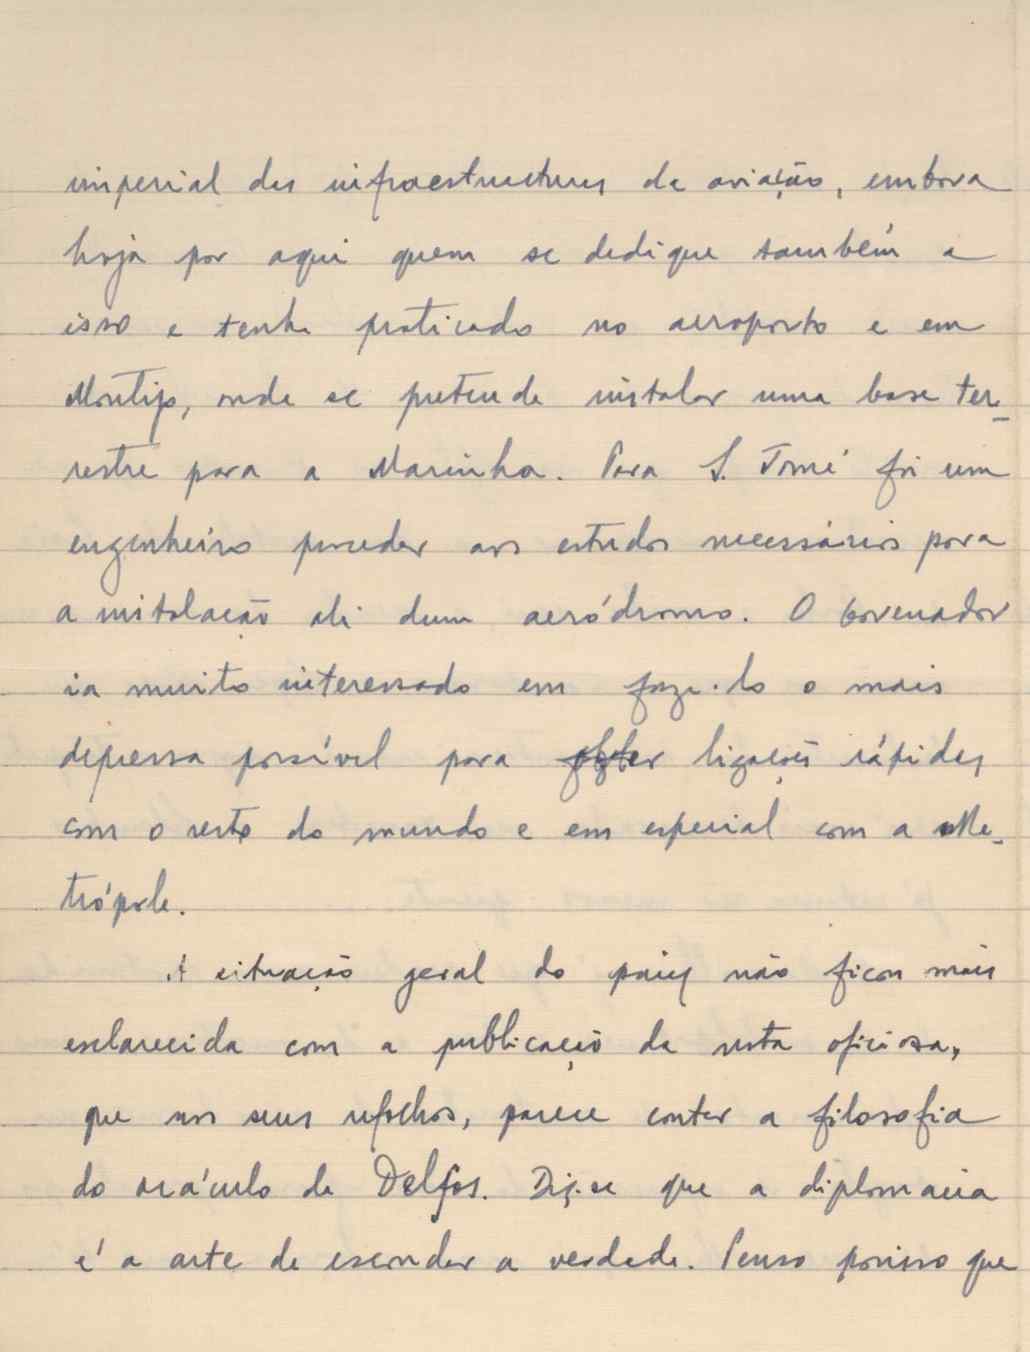 imperial das infraestructuras da aviação, embora
haja por aqui quem se dedique também a
isso e tenha praticado no aeroporto e em
Montijo, onde se pretende instalar uma base ter-
restre para a Marinha. Para S. Tomé foi um
engenheiro proceder aos estudos necessários para
a instalação ali dum aeródromo. O Governador
ia muito interessado em fazê-lo o mais
depressa possível para obter ligações rápidas
com o resto do mundo e em especial com a Me-
trópole.
A situação geral do país não ficou mais
esclarecida com a publicação da nota oficiosa,
que nos seus refolhos, parece conter a filosofia
do oráculo de Delfos. Diz-se que a diplomacia
é a arte de esconder a verdade. Penso porisso que